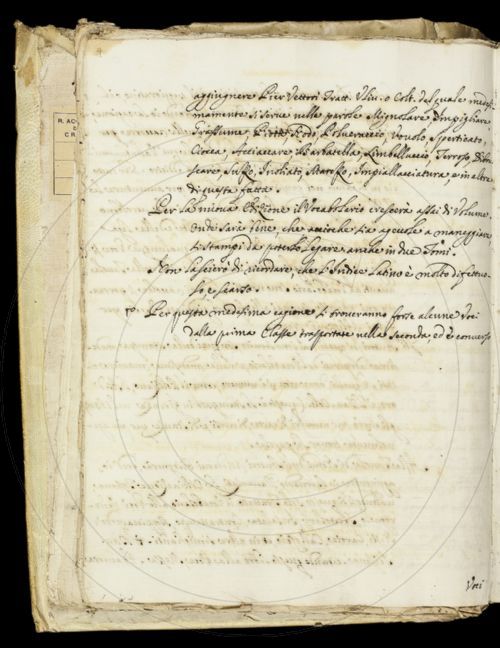 aggiugnere Pier Vettori Tratt. Uliv. o Colt. del quale medesi-
mamente si serve nelle parole Mignolare, Impigliare
Frassuma, Polveraccio, Vovolo, Sperticato,
Ciocca, Acciaccare, Barbatella, Limbelluccio, Terroso,
scare, Suffo, Inoliato, Staroffo, Impiallacciatura, e in altre
di questa fatta.
Per la nuova Edizione il Vocabolario crescerà assai di Volume
onde sarà bene, che acciocchè sia agevole a maneggiare
si Stampi da potersi legare anche in due Tomi.
Non lascierò di ricordare, che l'Indice Latino è molto difettuo-
so, e scarso.
Per questa medesima cagione si troveranno forse alcune Voci
dalla prima Classe trasportate nella seconda, ed è converso
Voci
R. AC
E
CR